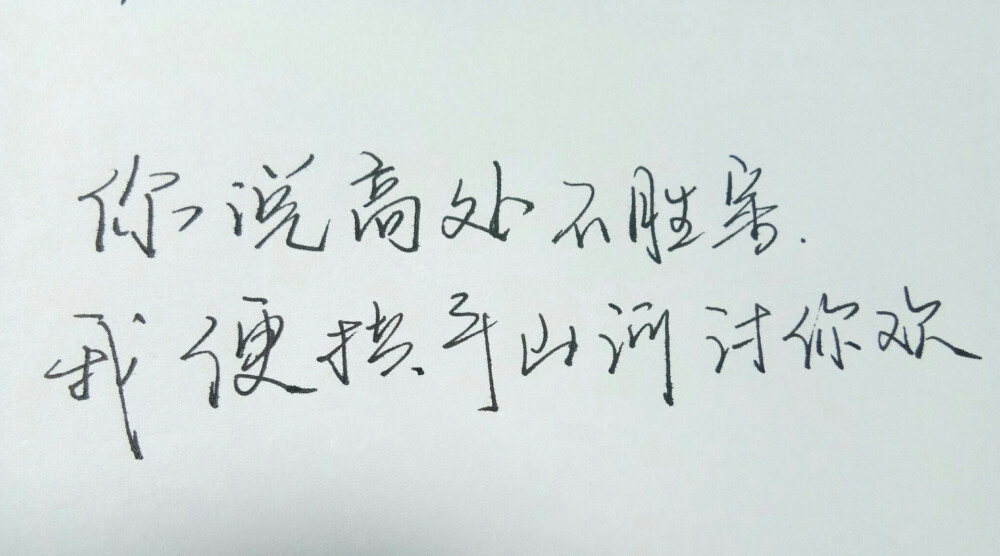 你说高处不胜寒.
我便拱手山河讨你欢